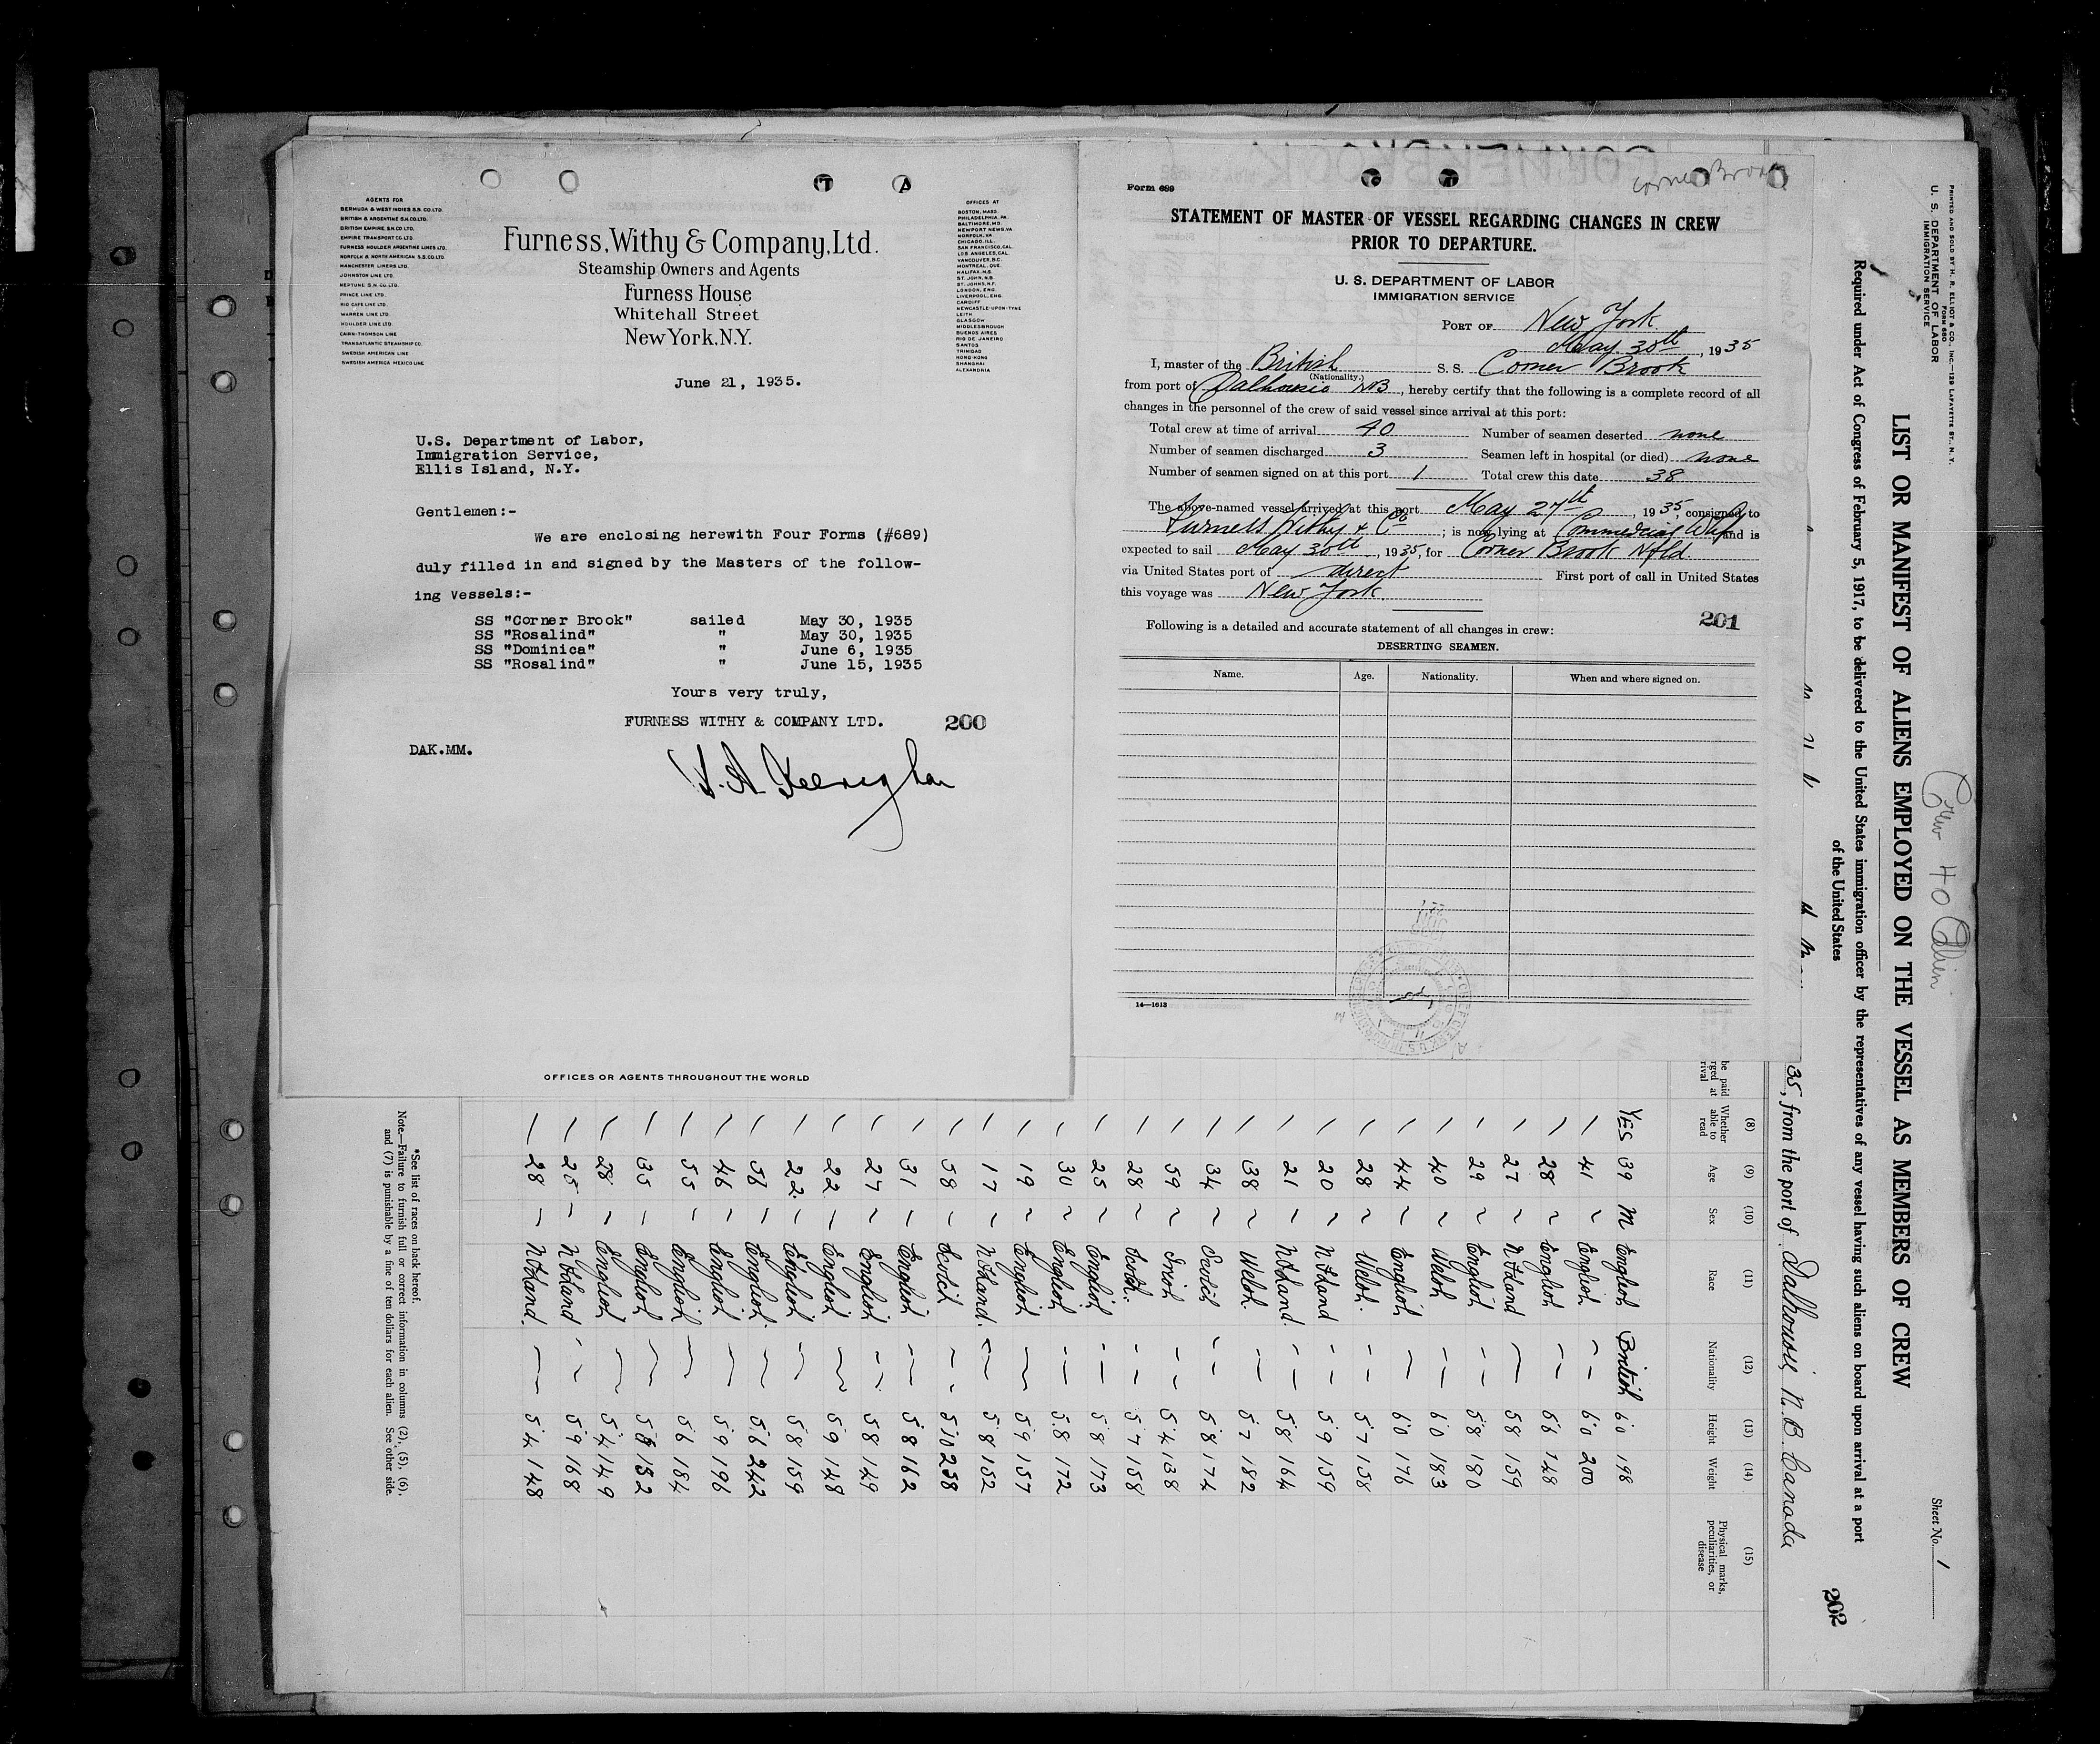 AGENTS FOR
BERMUDA & WEST INDIES S.S. CO. LTD.
BRITISH & ARGENTINE S.N. CO. LTD.
BRITISH EMPIRE S.N. CO. LTD.
EMPIRE TRANSPORT CO. LTD.
FURNESS HOULDER ARGENTINE LINES LTD.
NORFOLK & NORTH AMERICAN S.S. CO. LTD.
MANCHESTER LINERS LTD.
JOHNSTON LINE LTD.
NEPTUNE S.N. CO. LTD.
PRINCE LINE LTD.
RIO CAPE LINE LTD.
WARREN LINE LTD.
HOULDER LINE LTD.
CAIRN-THOMSON LINE
TRANSATLANTIC STEAMSHIP CO.
SWEDISH AMERICAN LINE
SWEDISH AMERICA MEXICO LINE
Furness, Withy & Company, Ltd.
Steamship Owners and Agents
Furness House
Whitehall Street
New York, N.Y.
OFFICES AT
BOSTON, MASS.
PHILADELPHIA, PA.
BALTIMORE, MD.
NEWPORT NEWS, VA
NORFOLK, VA
CHICAGO, ILL
SAN FRANCISCO, CAL.
LOS ANGELES, CAL.
VANCOUVER, B.C.
MONTREAL, QUE.
HALIFAX, N.S.
ST. JOHN, N.B
ST. JOHNS, N.F.
LONDON, ENG.
LIVERPOOL, ENG.
CARDIFF
NEWCASTLE-UPON-TYNE
LEITH
GLASGOW
MIDDLESBROUGH
BUENOS AIRES
RIO DE JANEIRO
SANTOS
TRINIDAD
HONG KONG
SHANGHAI
ALEXANDRIA
June 21, 1935.
U.S. Department of Labor,
Immigration Service,
Ellis Island, N.Y.
Gentlemen:-
We are enclosing herewith Four Forms (#689)
duly filled in and signed by the Masters of the follow-
ing Vessels:-
SS "Corner Brook" sailed May 30, 1935
SS "Rosalind" " May 30, 1935
SS "Dominica" " June 6, 1935
SS "Rosalind" " June 15, 1935
Yours very truly,
FURNESS WITHY & COMPANY LTD. 200
DAK.MM.
OFFICES OR AGENTS THROUGHOUT THE WORLD
Corner Brook
Form 689
STATEMENT OF MASTER OF VESSEL REGARDING CHANGES IN CREW
PRIOR TO DEPARTURE.
U. S. DEPARTMENT OF LABOR
IMMIGRATION SERVICE
PORT OF New York
May 30th, 1935
I, master of the British S. S. Corner Brook
(Nationality.)
from port of Dalhousie NB, hereby certify that the following is a complete record of all
changes in the personnel of the crew of said vessel since arrival at this port:
Total crew at time of arrival 40 Number of seamen deserted none
Number of seamen discharged 3 Seamen left in hospital (or died) none
Number of seamen signed on at this port 1 Total crew this date 38
The above-named vessel arrived at this port May 27th, 1935, consigned to
Furness Withy & Co; is now lying at Commercial Whf and is
expected to sail May 30th, 1935, for Corner Brook Nfld
via United States port of direct First port of call in United States
this voyage was New York
201
Following is a detailed and accurate statement of all changes in crew:
DESERTING SEAMEN.
Name. Age. Nationality. When and where signed on.
14—1613
PRINTED AND SOLD BY H. R. ELLIOT & CO., INC.—129 LAFAYETTE ST., N. Y.
Form 680
U. S. DEPARTMENT OF LABOR
IMMIGRATION SERVICE
Crew 40 Alien
Sheet No. 1
LIST OR MANIFEST OF ALIENS EMPLOYED ON THE VESSEL AS MEMBERS OF CREW
Required under Act of Congress of February 5, 1917, to be delivered to the United States immigration officer by the representatives of any vessel having such aliens on board upon arrival at a port
of the United States
202
35, from the port of Dalhousie N.B. Canada
(8) (9) (10) (11) (12) (13) (14) (15)
Whether able to read Age Sex Race Nationality Height Weight Physical marks, peculiarities, or disease
YES 39 M English British 6 0 198
41 English 6 0 200
28 English 148
27 Nfland 5 8 159
29 English 5 8 180
40 Welsh 6 0 183
44 English 6 0 176
28 Welsh 5 7 158
20 Nfland 5 9 159
21 Nfland 5 8 164
38 Welsh 5 7 182
34 Scotch 5 8 174
59 Irish 5 4 138
28 Scotch 5 7 158
25 English 5 8 173
30 English 5 8 172
19 English 5 9 157
17 Nfland 5 8 152
58 Scotch 5 10 238
31 English 5 8 162
27 English 5 8 149
22 English 5 9 148
22 English 5 8 159
56 English 5 6 242
46 English 5 9 196
55 English 5 6 184
35 English 5 8 132
28 English 5 4 149
25 Nfland 5 9 168
28 Nfland 5 4 148
*See list of races on back hereof.
Note.—Failure to furnish full or correct information in columns (2), (5), (6),
and (7) is punishable by a fine of ten dollars for each alien. See other side.